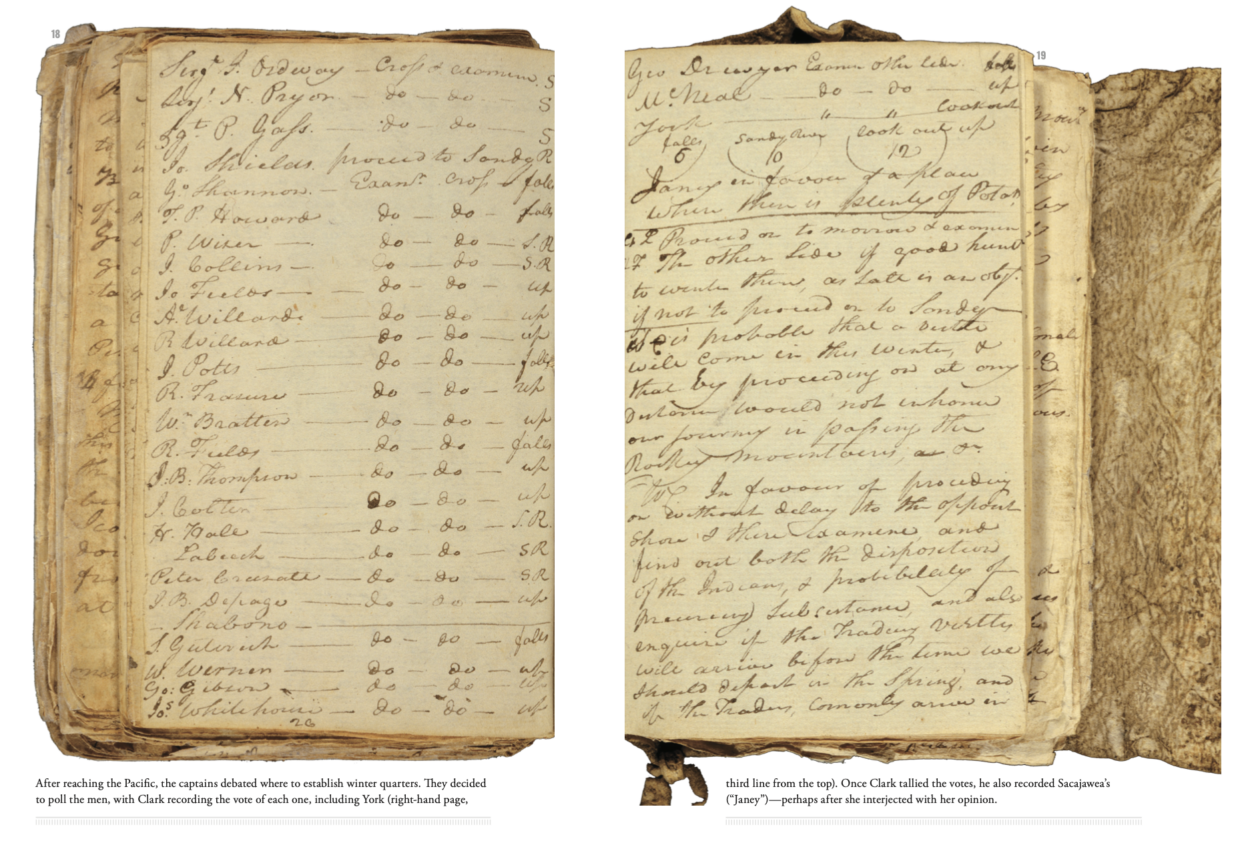 18
Serjt. J. Ordway — Cross & examine S
Serjt. N. Pryor — do — do — S
Sgt. P. Gass. — do — do — S
Jo. Shields. proceed to Sandy R
Go. Shannon. — Examn. Cross — falls
T. P. Howard — do — do — falls
P. Wiser — do — do — S.R
J. Collins — do — do — S.R
Jo Fields — do — do — up
Al. Willard — do — do — up
R Willard — do — do — up
J. Potts — do — do — falls
R. Frasure — do — do — up
Wm. Bratten — do — do — up
R. Fields — do — do — falls
J:B: Thompson — do — do — up
J. Colter — do — do — up
H. Hall — do — do — S.R.
Labeech — do — do — SR
Peter Crusatte — do — do — SR
J. B. Depage — do — do — up
— Shabono —
S. Guterich — do — do — falls
W. Werner — do — do — up
Go: Gibson — do — do — up
Jos. Whitehouse — do — do — up
26
After reaching the Pacific, the captains debated where to establish winter quarters. They decided
to poll the men, with Clark recording the vote of each one, including York (right-hand page,
19
Geo Drewyer Examn other side falls
McNeal — do — do — up
York — " " lookout
falls Sandy River look out up
6 10 12
Janey in favour of a place
where there is plenty of Potas.
Proceed on to morrow & examine
The other side if good hunt
to winter there, as Salt is an obj.
if not to proceed on to Sandy
is probable that a
will come in this winter, &
that by proceeding on at any
Distance would not inhance
our journey in passing the
Rocky mountains, &c.
In favour of proceding
on without delay to the opposit
Shore & there examine, and
find out both the disposition
of the Indians, & probibilaty of
precureing Subsistance, and also
enquire if the Tradeing vestles
will arrive before the time we
Should depart in the Spring, and
if the Traders, comonly arive in
third line from the top). Once Clark tallied the votes, he also recorded Sacajawea's
("Janey")—perhaps after she interjected with her opinion.